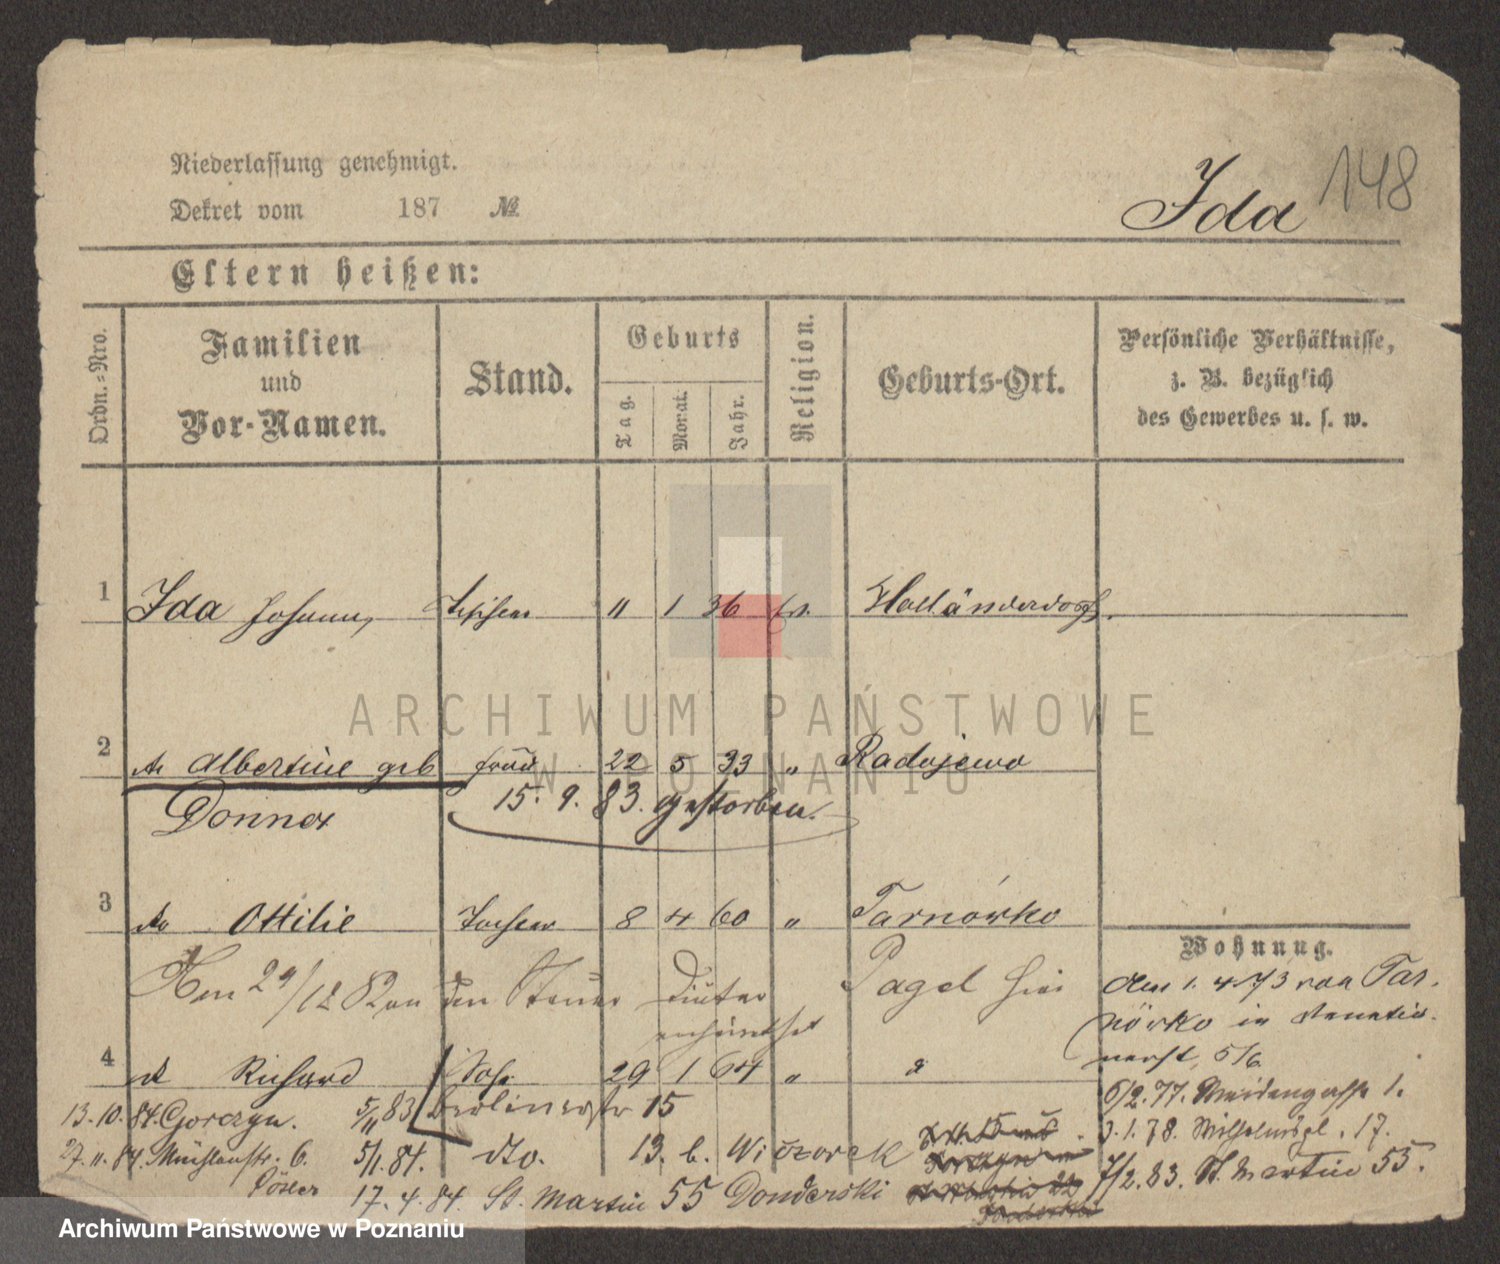 Niederlassung genehmigt.
Dekret vom 187 №
Ida 148
Eltern heißen:
Ordn.=Nro.
Familien
und
Vor-Namen.
Stand.
Geburts
Tag.
Monat.
Jahr.
Religion.
Geburts-Ort.
Persönliche Verhältnisse,
z. B. bezüglich
des Gewerbes u. s. w.
1 Ida Johann, " 1 36 Ev. Holländerdorf.
ARCHIWUM PAŃSTWOWE
W POZNANIU
2 do Albertine geb Frau 22 5 33 " Radojewo
Donner 15. 9. 83. gestorben.
3 do Ottilie Tochter 8 4 60 " Tarnówko
Wohnung.
Am 29/12 82 an den Steuer Pagel hier
den 1. 4 73 von Tar-
nówko in
5/6.
4 do Richard Sohn 29 1 64 "
6/2. 77. Waidengasse 1.
13. 10. 84. Gorczyn. 5/11 83 Berlinerstr 15
3. 1. 78. Wilhelmspl. 17.
27. 11. 84. Mühlenstr. 6. 5/1. 84. do. 13. b. Wiczorek
7/2. 83. St. Martin 55.
17. 4. 84. St. Martin 55 Donderski
Archiwum Państwowe w Poznaniu